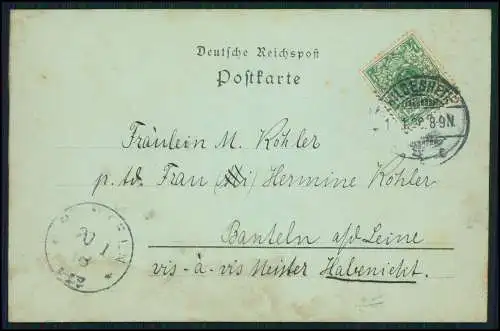 Deutsche Reichspost
Postkarte
HILDESHEIM
8-9N.
Fräulein M. Köhler
p. ad. Frau Hermine Köhler
Banteln a/d Leine
vis-à-vis Meister Habenicht.